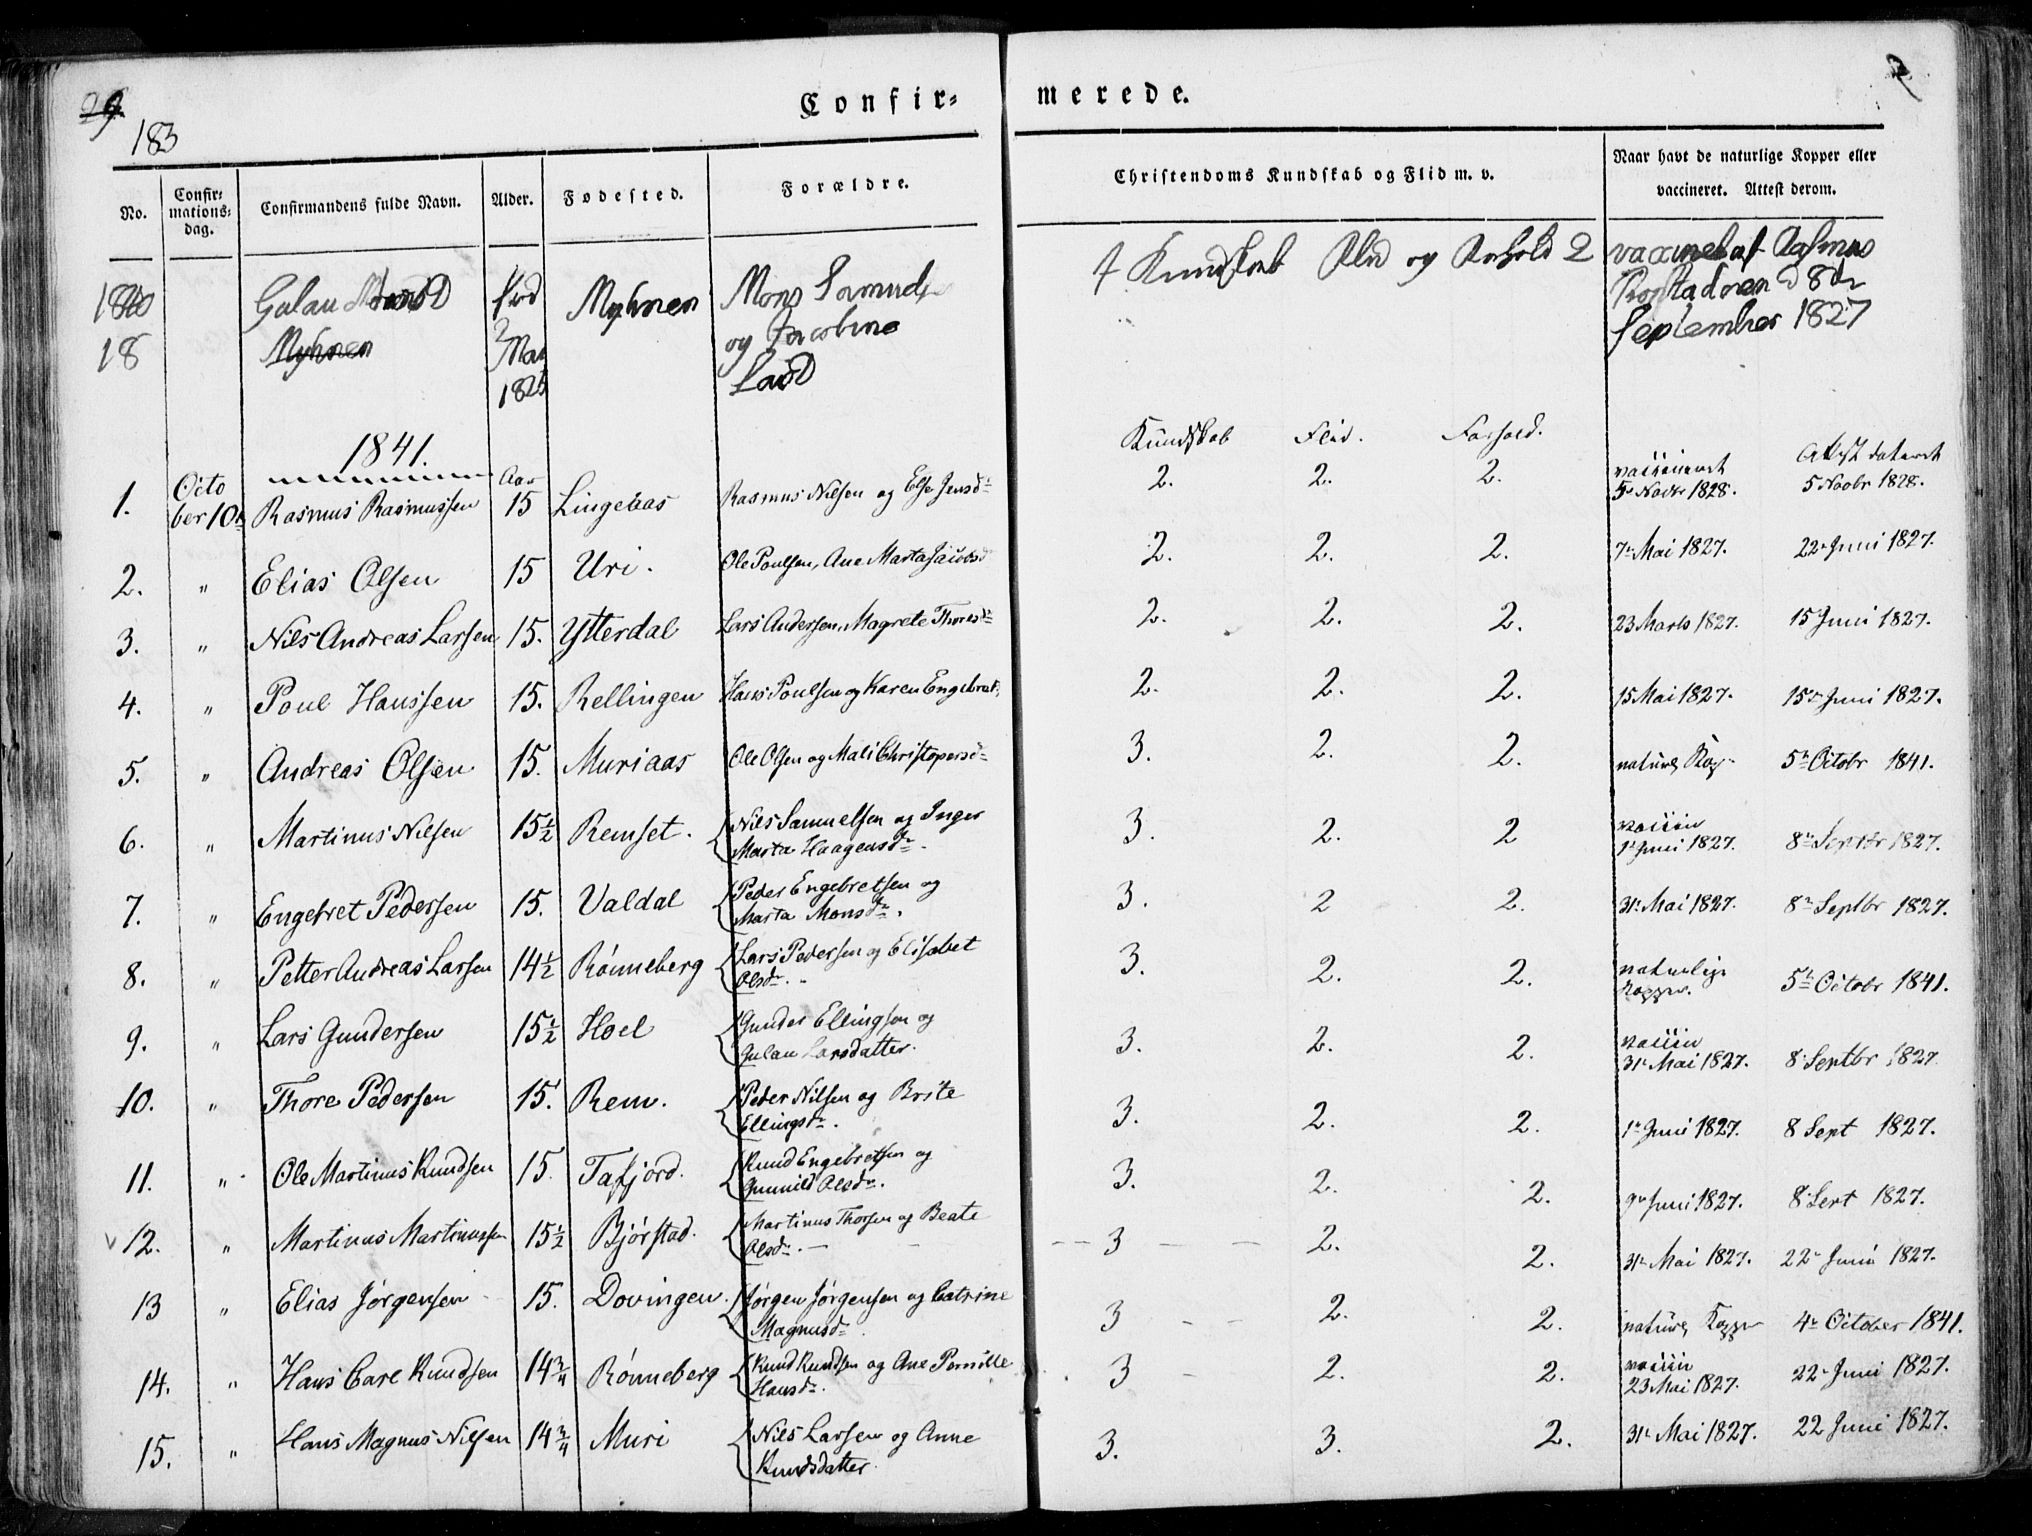 29
183
Confir= merede.
No. Confir=mations=dag. Confirmandens fulde Navn. Alder. Fødested. Forældre. Christendoms Kundskab og Flid m. v. Naar havt de naturlige Kopper eller vaccineret. Attest derom.
18 Myhren Myhren Mons og Jacobine 2 September 1827
1841. Kundskab Flid. Forhold. Attest dateret
1. Octo ber 10de Rasmus Rasmussen Aar 15 Lingeaas Rasmus Nilsen og Else Jensdr 2. 2. 2. vaccineret 5te Novbr 1828. 5 Novbr 1828.
2. " Elias Olsen 15 Uri. Ole Poulsen, Ane Marta Jacobsd 2. 2. 2. 7de Mai 1827. 22de Juni 1827.
3. " Nils Andreas Larsen 15. Ytterdal Lars Andersen, Magrete Thoresdr 2. 2. 2. 23 Marts 1827. 15 Juni 1827.
4. " Poul Hanssen 15. Rellingen Hans Poulsen og Karen Engebret. 2. 2. 2. 15 Mai 1827. 15de Juni 1827.
5. " Andreas Olsen 15. Muriaas Ole Olsen og Mali Christopersdr 3. 2. 2. naturl Kop. 5te Octobr 1841.
6. " Martinus Nilsen 15½ Remset. Nils Samuelsen og Inger Marta Haagensdr. 3. 2. 2 vaccin 1te Juni 1827. 8de Septbr 1827.
7. " Engebret Pedersen 15. Valdal Peder Engebretsen og Marta Monsdr. 3. 2 2. 31te Mai 1827. 8de Septbr 1827.
8. " Petter Andreas Larsen 14½ Rønneberg Lars Pedersen og Elisabet Olsdr. 3. 2. 2. naturlige Kopper. 5te Octobr 1841.
9. " Lars Gundersen 15½ Hoel Gunder Ellingsen og Gulau Larsdatter. 3. 2. 2. vaccin 31te Mai 1827. 8 Septbr 1827.
10. " Thore Pedersen 15. Rem. Peder Nilsen og Brite Ellingsdr. 3. 2. 2. 1te Juni 1827. 8 Sept 1827.
11. " Ole Martinus Knudsen 15. Tafjord. Knud Engebretsen og Gunnild Olsdr. 3. 2. 2. 9de Juni 1827. 8 Sept 1827.
12. " Martinus Martinussen 15½ Bjørstad. Martinus Thorsen og Beate Olsdr. 3 2. 2. 31te Mai 1827. 22de Juni 1827.
13 " Elias Jørgensen 15. Dovingen. Jørgen Jørgensen og Catrine Magnusdr 3 2. 2. naturl Kopper 4de October 1841.
14. " Hans Carl Knudsen 14¾ Rønneberg Knud Knudsen og Ane Pernille Hansdr. 3 2. 2. vaccin 23 Mai 1827. 22de Juni 1827.
15. " Hans Magnus Nilsen 14¾ Muri Nils Larsen og Anne Knudsdatter. 3. 3. 2. 31te Mai 1827. 22 Juni 1827.